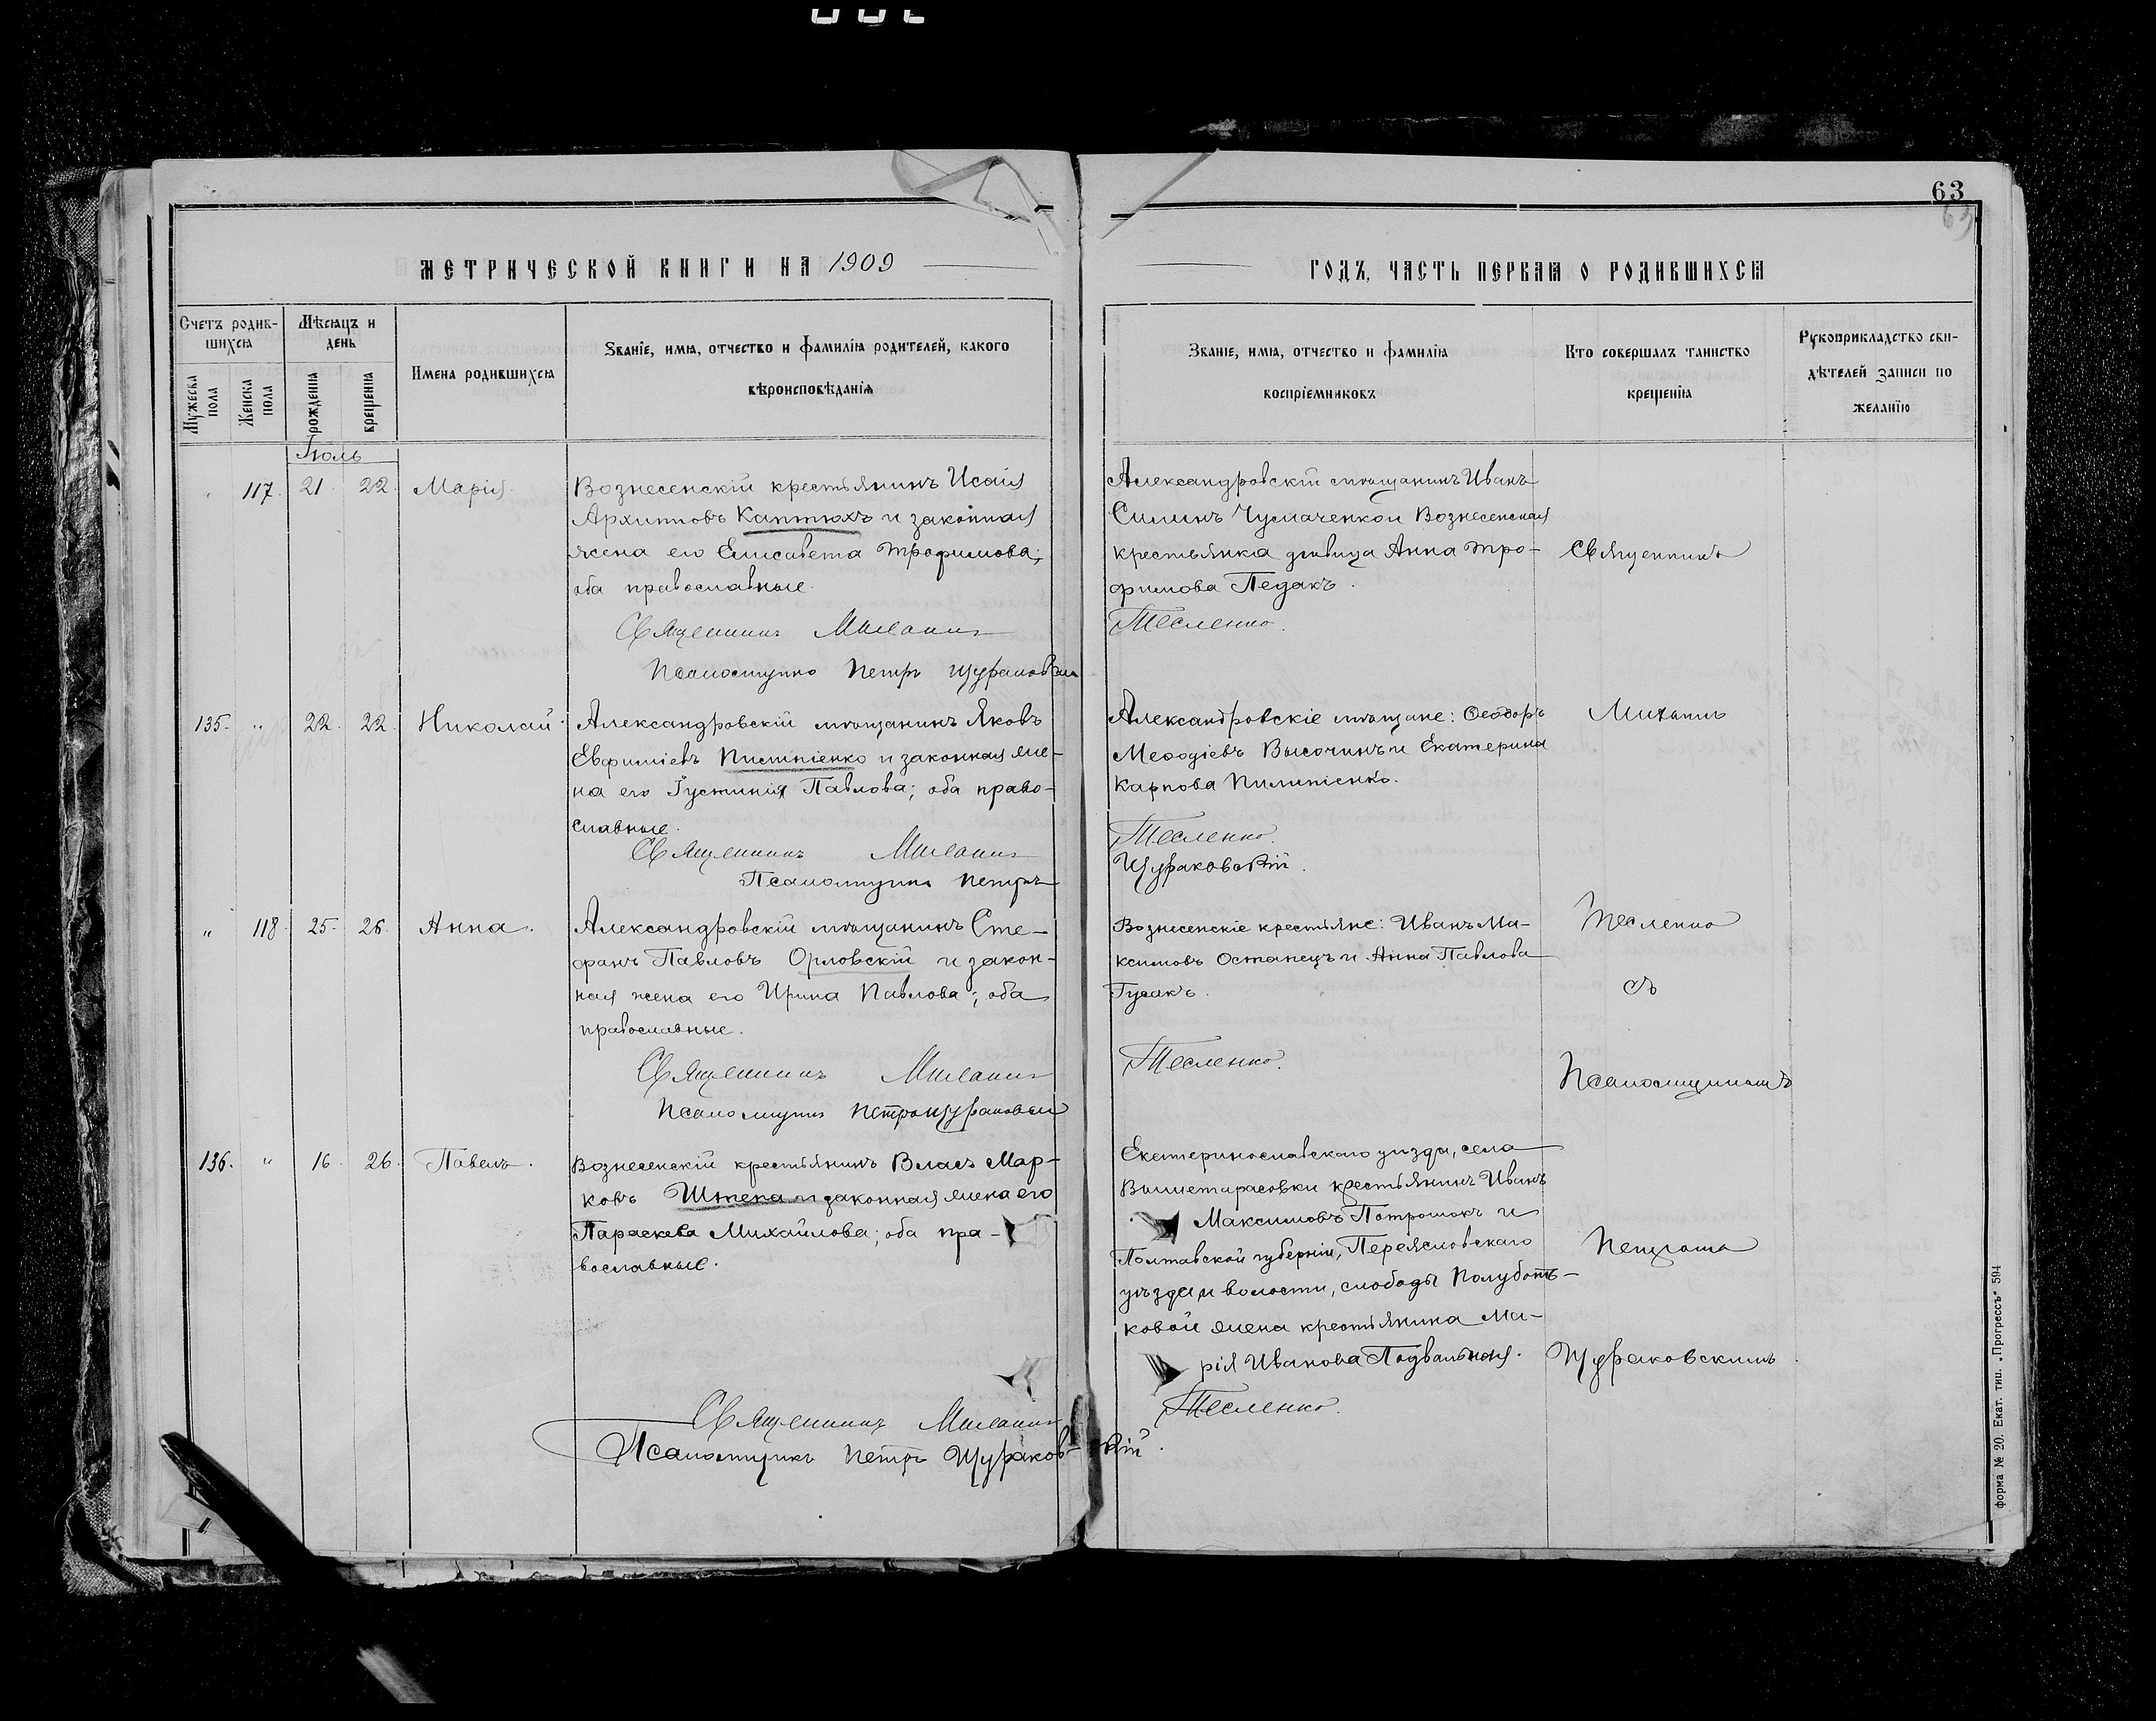 63
63
МЕТРИЧЕСКОЙ КНИГИ НА 1909
ГОДЪ, ЧАСТЬ ПЕРВАЯ О РОДИВШИХСЯ
Счетъ родив-
шихся
Мѣсяцъ и
день
Мужеска
пола
Женска
пола
рожденія
крещенія
Имена родившихся
Званіе, имя, отчество и фамилія родителей, какого
вѣроисповѣданія
Званіе, имя, отчество и фамилія
воспріемниковъ
Кто совершалъ таинство
крещенія
Рукоприкладство сви-
дѣтелей записи по
желанію
Іюль
" 117. 21. 22. Марія.
Вознесенскій крестьянинъ Исаія
Архиповъ Каптюхъ и законная
жена его Елисавета Трофимова;
оба православные.
Священникъ Михаилъ
Псаломщикъ Петръ Щураковскій
Александровскій мѣщанинъ Иванъ
Силинъ Чумаченко и Вознесенская
крестьянка дѣвица Анна Тро-
фимова Педакъ.
Тесленко.
Священникъ
135. " 22. 22. Николай.
Александровскій мѣщанинъ Яковъ
Евфиміевъ Пилипіенко и законная же-
на его Іустинія Павлова; оба право-
славные.
Священникъ Михаилъ
Псаломщикъ Петръ
Александровскіе мѣщане: Ѳеодоръ
Меѳодіевъ Высочинъ и Екатерина
Карпова Пилипіенко.
Тесленко.
Щураковскій.
Михаилъ
" 118. 25. 26. Анна.
Александровскій мѣщанинъ Сте-
фанъ Павловъ Орловскій и закон-
ная жена его Ирина Павлова; оба
православные.
Священникъ Михаилъ
Псаломщикъ Петръ Щураковскій
Вознесенскіе крестьяне: Иванъ Ма-
ксимовъ Останецъ и Анна Павлова
Гусакъ.
Тесленко.
Тесленко
съ
Псаломщикомъ
136. " 16. 26. Павелъ.
Вознесенскій крестьянинъ Власъ Мар-
ковъ Штепа и законная жена его
Параскева Михайлова; оба пра-
вославные.
Священникъ Михаилъ
Псаломщикъ Петръ Щураковскій.
Екатеринославскаго уѣзда, села
Вышетарасовки крестьянинъ Иванъ
Максимовъ Потрошокъ и
Полтавской губерніи, Переяславскаго
уѣзда и волости, слободы Полубот-
ковой жена крестьянина Ма-
рія Иванова Подвальная.
Тесленко.
Петромъ
Щураковскимъ.
форма № 20. Екат. тип. „Прогрессъ" 594